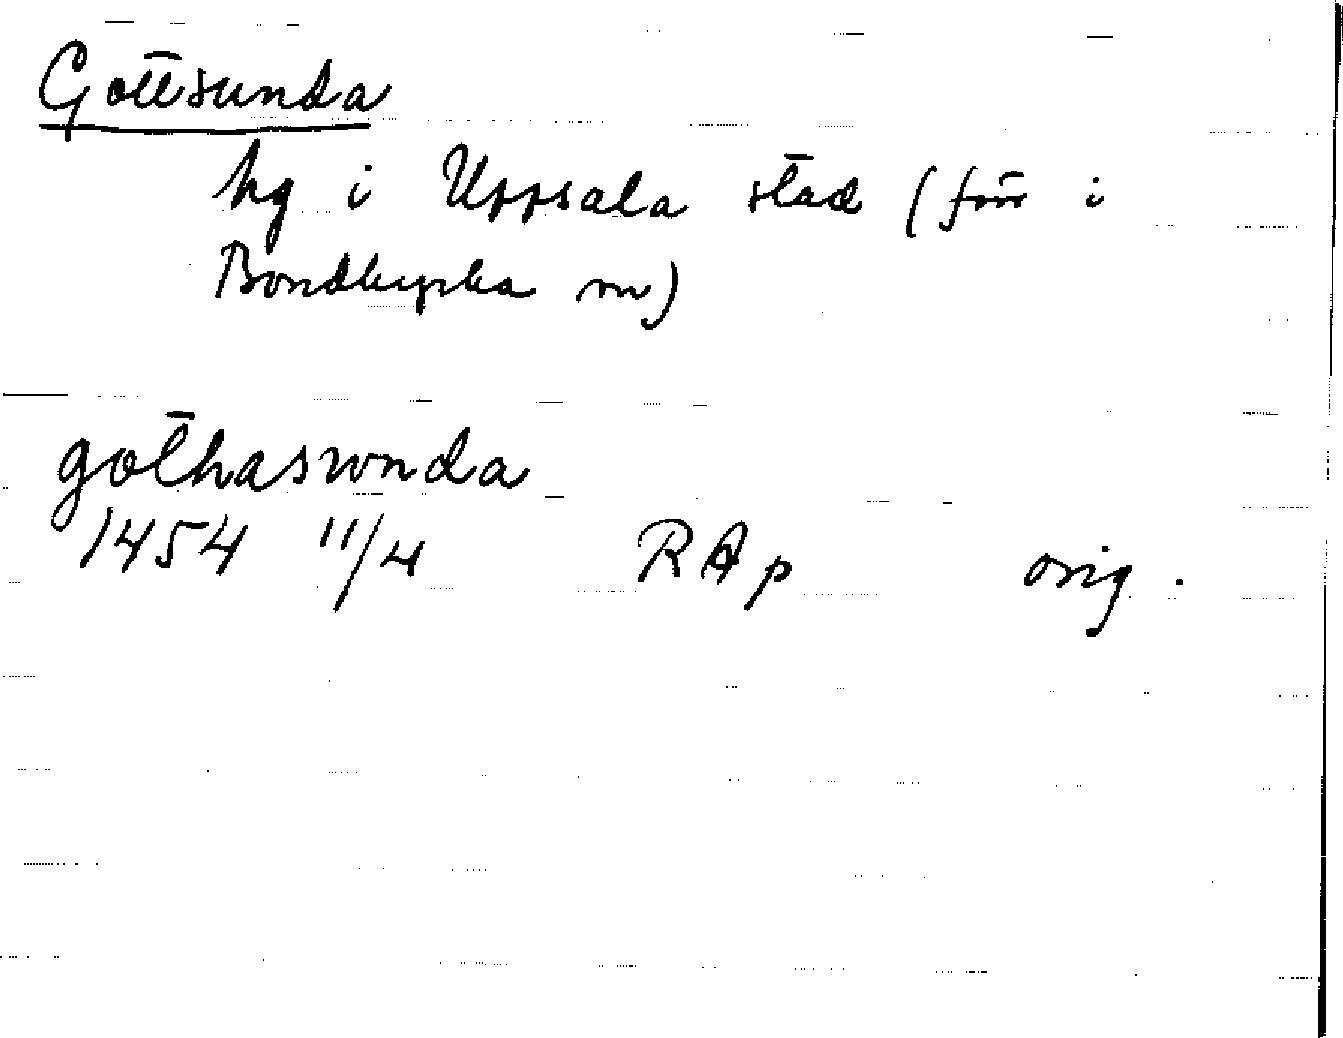 Gottsunda
hg i Uppsala stad (förr i
Bondkyrka sn)
gothaswnda
1454 11/4 RAp orig.